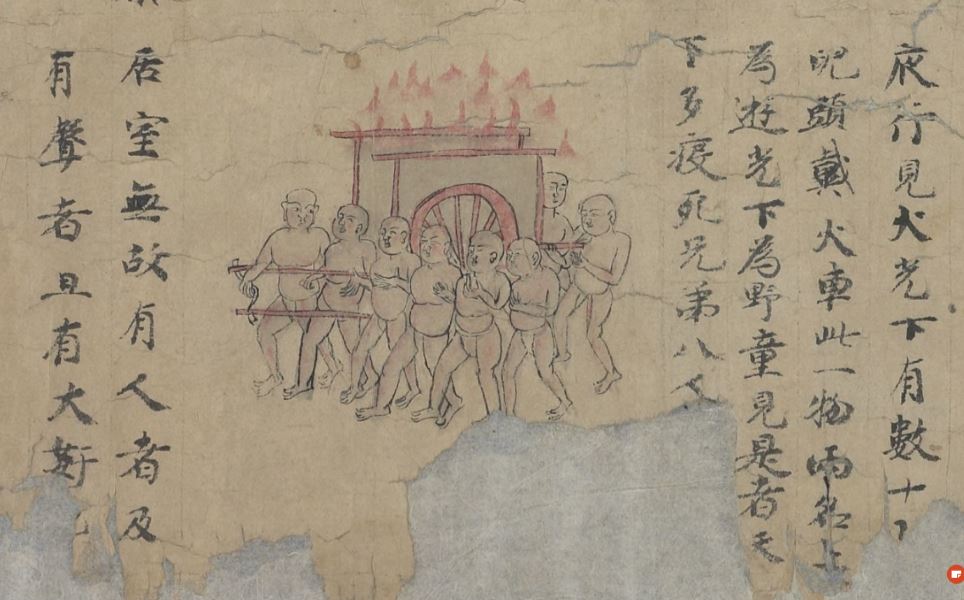 夜行見火光下有數十
兒頭戴火車此一物兩名上
為遊光下為野童見是者天
下多疫死兄弟八人
居室無故有人者及
有聲者且有大